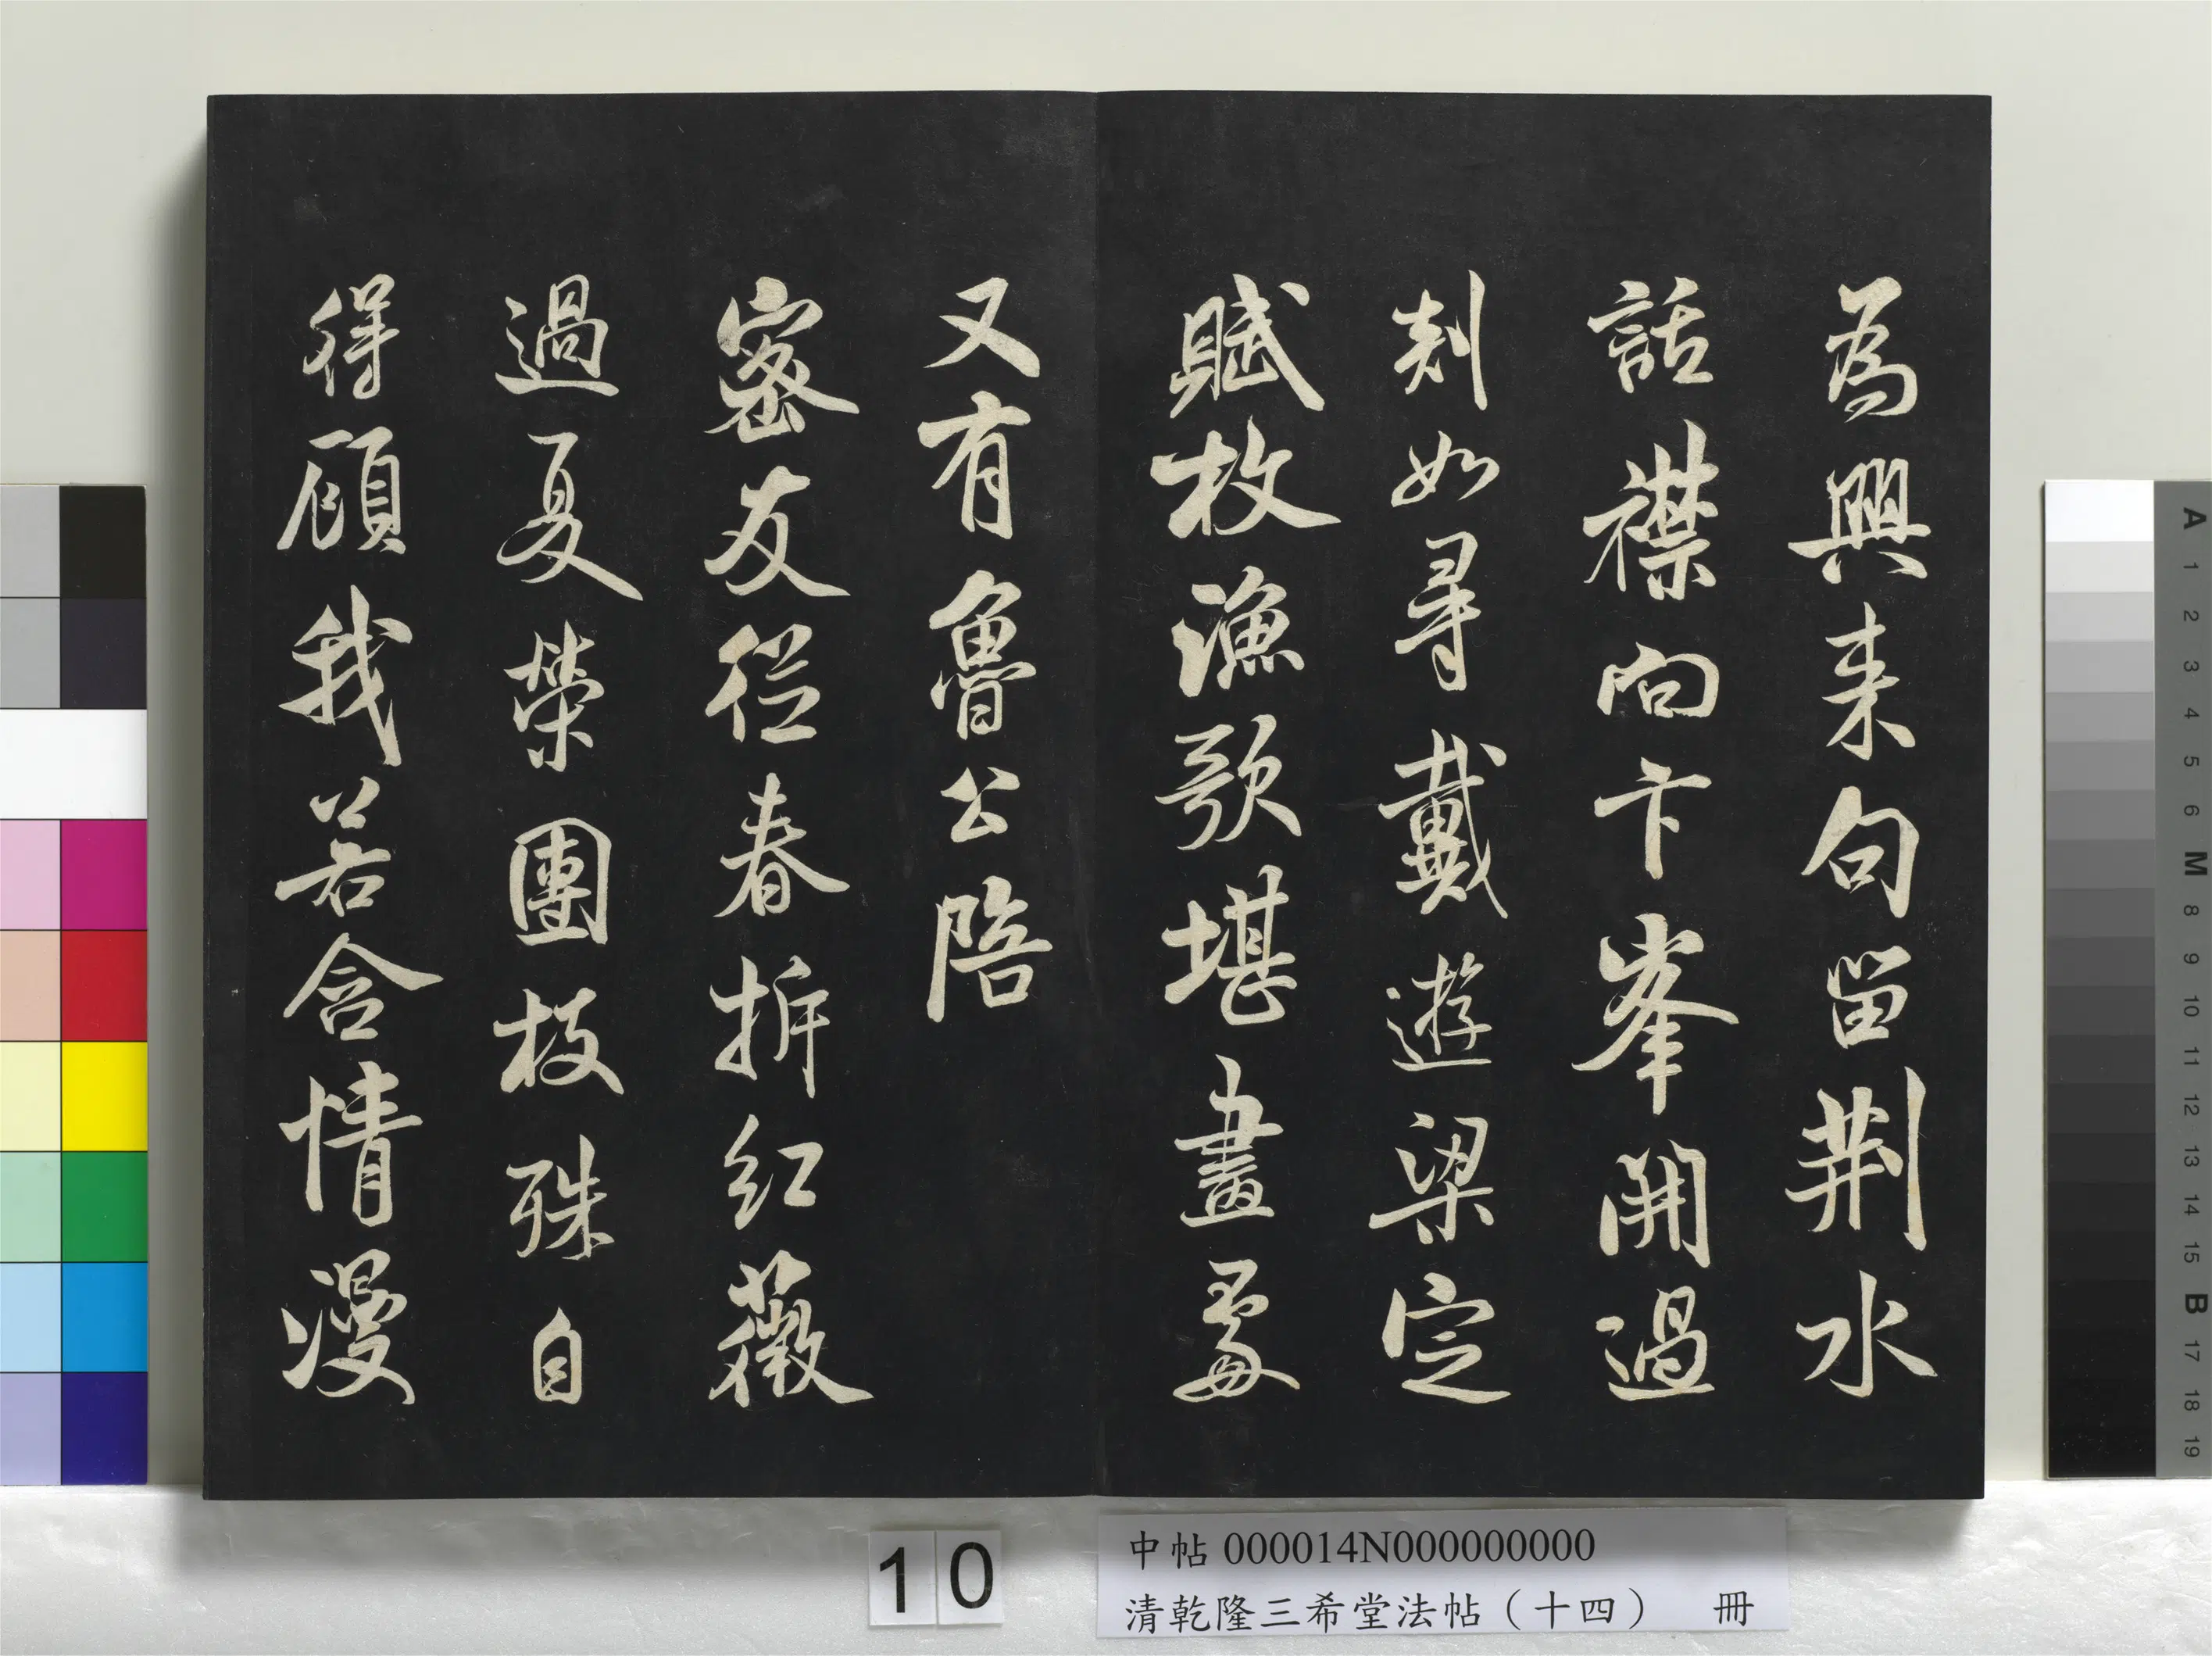 為興来句留荆水
話襟向卞峯開過
剡如尋戴遊梁定
賦枚漁歌堪畫處
又有魯公陪
密友從春拆紅薇
過夏榮團枝殊自
得顧我若含情漫
10
中帖 000014N000000000
清乾隆三希堂法帖（十四） 冊
A 1 2 3 4 5 6 M 8 9 10 11 12 13 14 15 B 17 18 19